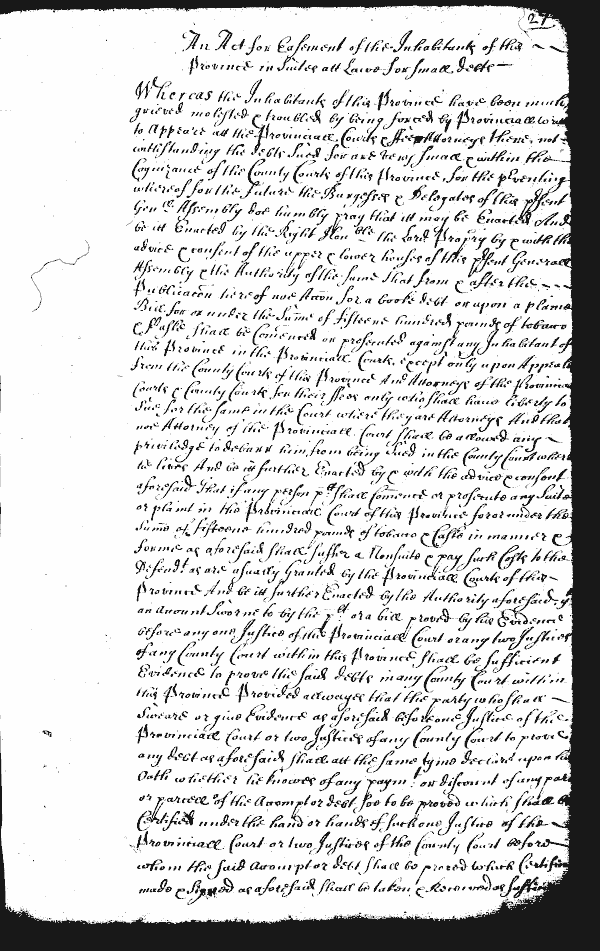 27
An Act for Easement of the Inhabitants of this
Province in Suites att Lawe for small debts
Whereas the Inhabitants of this Province have been much
grieved molested & troubled by being forced by Provinciall writts
to Appeare at the Provinciall Courts & ffee Attorneys there, not
withstanding the debts sued for are very small & within the
Cognizance of the County Courts of this Province for the pventing
whereof for the future the Burgesses & Delegates of this psent
Genll Assembly doe humbly pray that itt may be Enacted And
be itt Enacted by the Right Honble the Lord Propry by & with the
advice & consent of the upper & lower houses of this psent Generall
Assembly & the Authority of the same That from & after the
Publicacon hereof noe Accon for a booke debt or upon a plaine
Bill for or under the Sume of fifteene hundred pounds of tobacco
& Caske shall be Comenced or prosecuted against any Inhabitant of
this Province in the Provinciall Courts, except only upon Appeale
from the County Courts of this Province And Attorneys of the Provinciall
Courts & County Courts for their ffees only who shall have liberty to
Sue for the same in the Court where they are Attorneys And that
noe Attorney of the Provinciall Court shall be allowed any
priviledge to debarr him from being sued in the County Court where
he lives And be itt further Enacted by & with the advice & consent
aforesaid That if any person pltt shall comence or prosecute any Suite
or plaint in the Provinciall Court of this Province for or under the
Sume of fifteene hundred pounds of tobacco & Caske in manner &
forme as aforesaid shall suffer a Nonsuite & pay such Costs to the
Defendt as are usually granted by the Provinciall Courts of this
Province And be itt further Enacted by the Authority aforesaid, yt
an Account Sworne to by the pltt or a bill proved by his Evidence
before any one Justice of the Provinciall Court or any two Justices
of any County Court within this Province shall be sufficient
Evidence to prove the said debts in any County Court within
this Province Provided allwayes that the party who shall
Sweare or give Evidence as aforesaid before one Justice of the
Provinciall Court or two Justices of any County Court to prove
any debt as aforesaid shall att the same tyme declare upon his
Oath whether he knowes of any paymt or discount of any part
or parcell of the Accompt or debt soe to be proved which shall be
Certified under the hand or hands of such one Justice of the
Provinciall Court or two Justices of the County Court before
whom the said Accompt or debt shall be proved which Certificate
made & Signed as aforesaid shall be taken & Received as